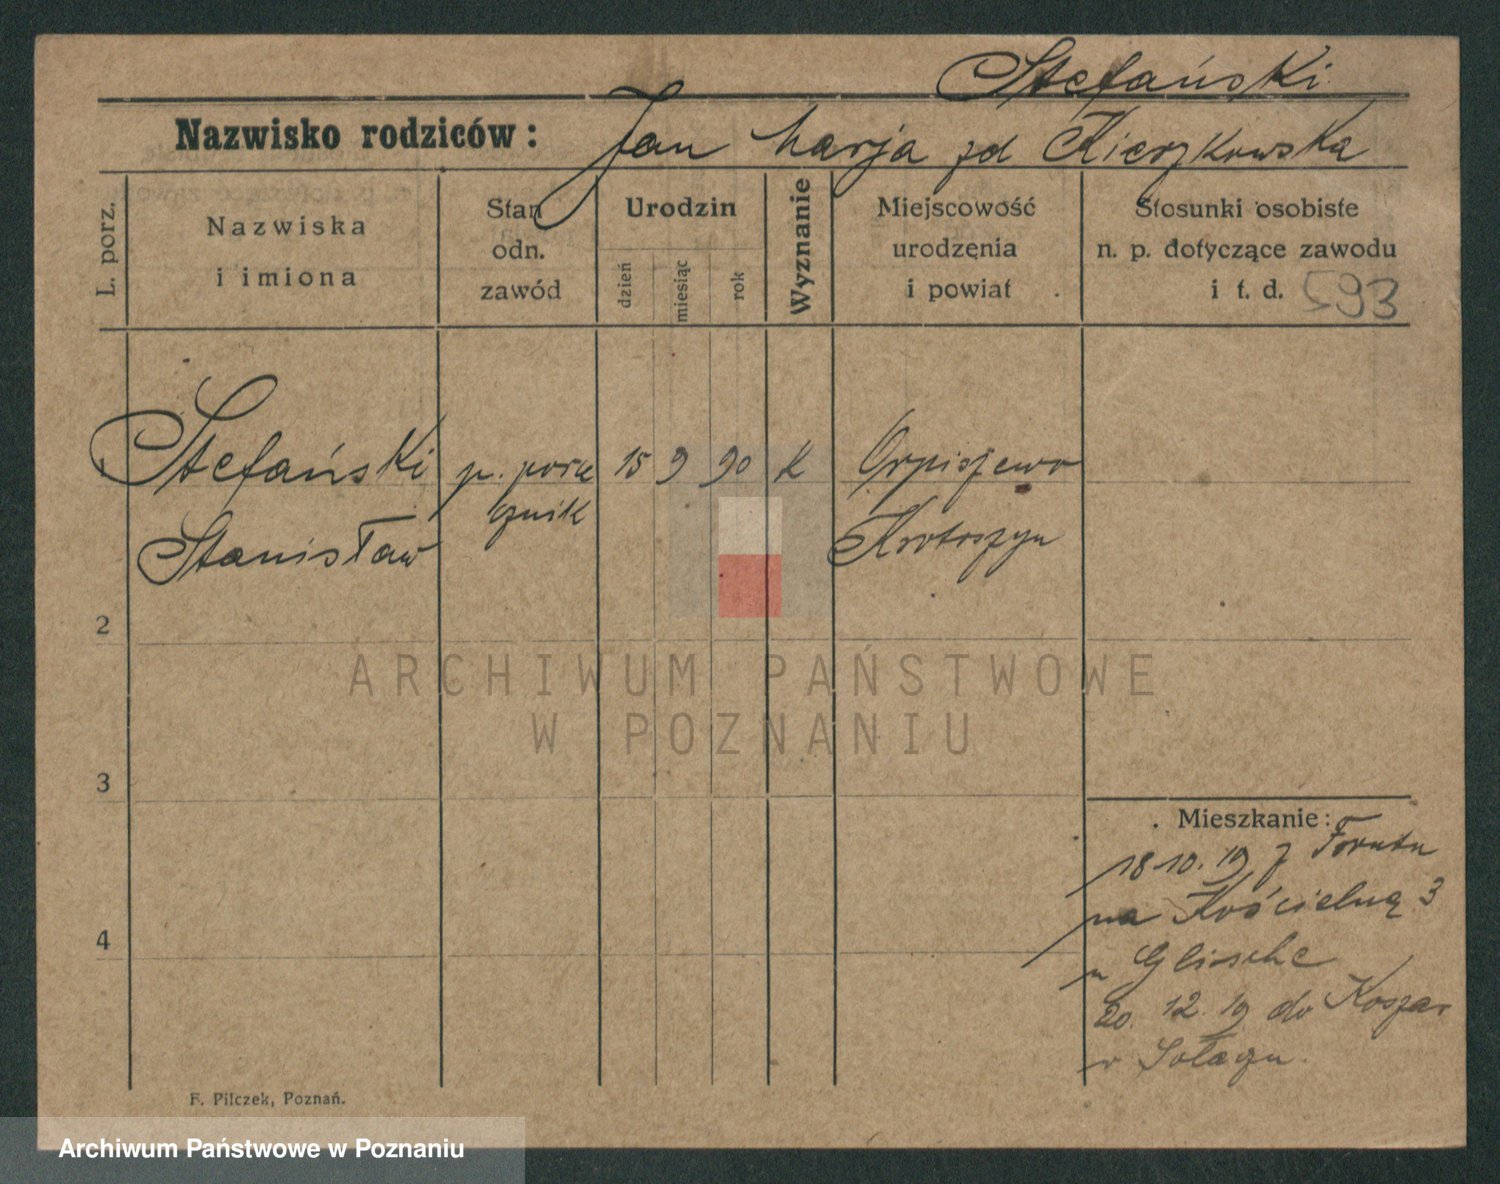 Stefański
Nazwisko rodziców: Jan Marja zd Kierzkowska
L. porz.
Nazwiska
i imiona
Stan
odn.
zawód
Urodzin
dzień
miesiąc
rok
Wyznanie
Miejscowość
urodzenia
i powiat
Stosunki osobiste
n. p. dotyczące zawodu
i t. d. 593
1 Stefański p. poru 15 9 90 k Orpiszewo
cznik
Stanisław Krotoszyn
2
3
4
Mieszkanie:
18.10.19 z Torutu
na Kościelną 3
u Glische
20.12.19 do Koszar
w Sołaczu.
F. Pilczek, Poznań.
ARCHIWUM PAŃSTWOWE
W POZNANIU
Archiwum Państwowe w Poznaniu